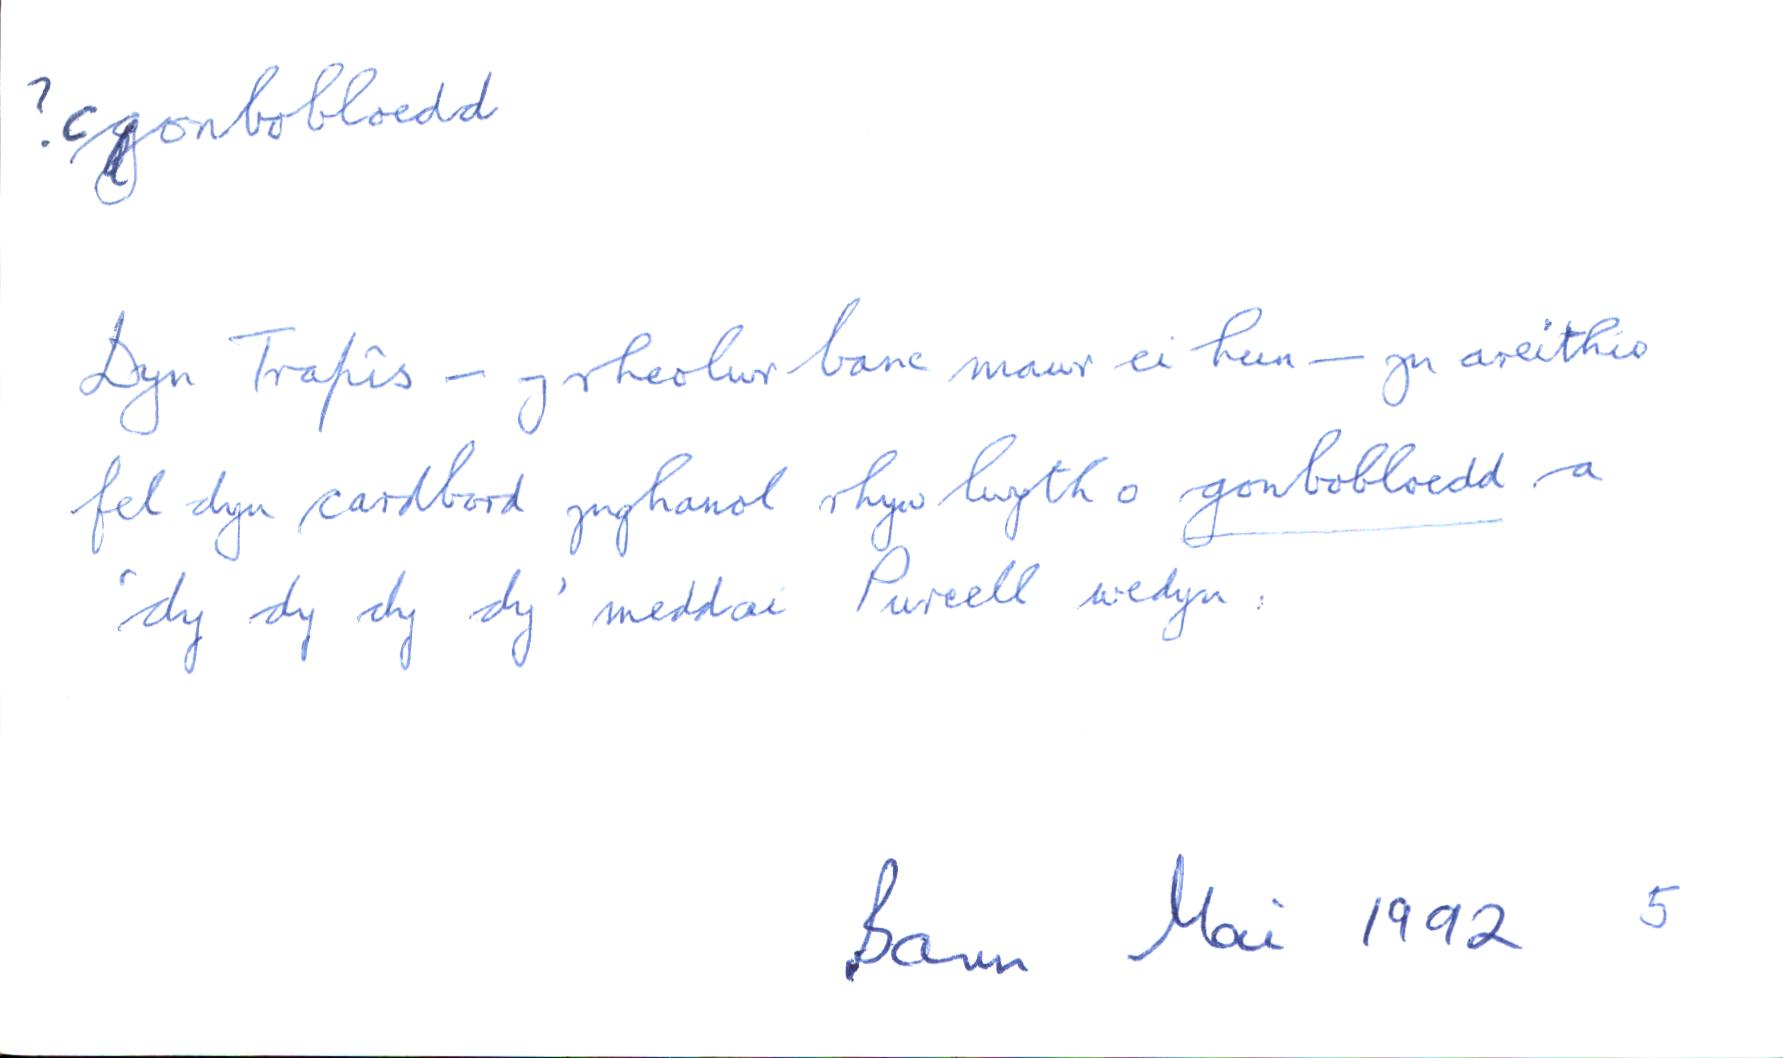 ?c gonbobloedd
Dyn Trapîs – y rheolwr banc mawr ei hun – yn areithio
fel dyn cardbord ynghanol rhyw lwyth o gonbobloedd a
'dy dy dy dy' meddai Purcell wedyn.
Barn Mai 1992 5